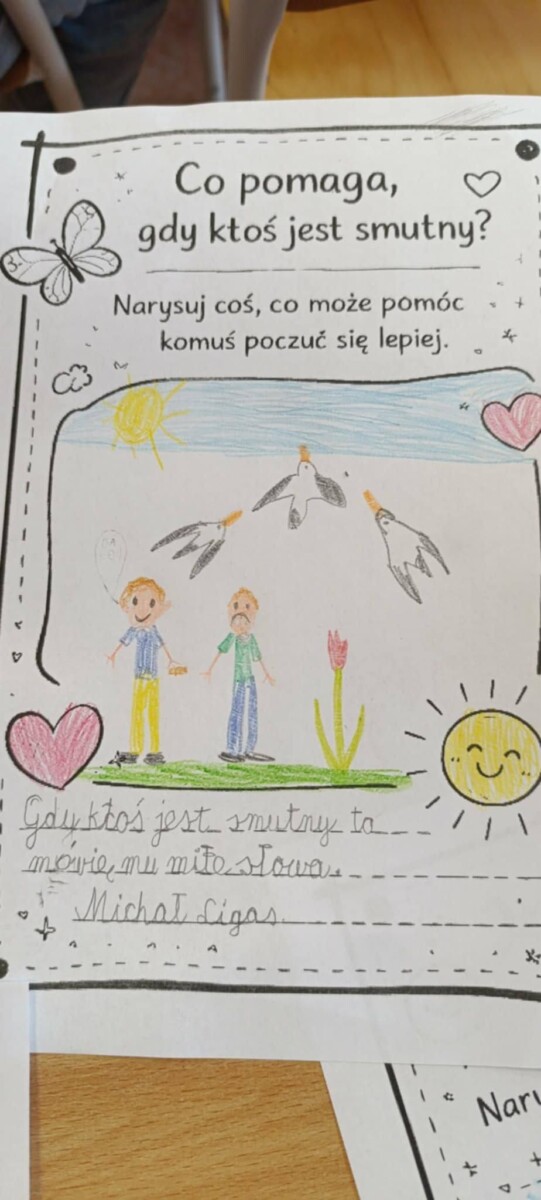 Co pomaga,
gdy ktoś jest smutny?
Narysuj coś, co może pomóc
komuś poczuć się lepiej.
Gdy ktoś jest smutny to
mówię mu miłe słowa.
Michał Ligas
Nary